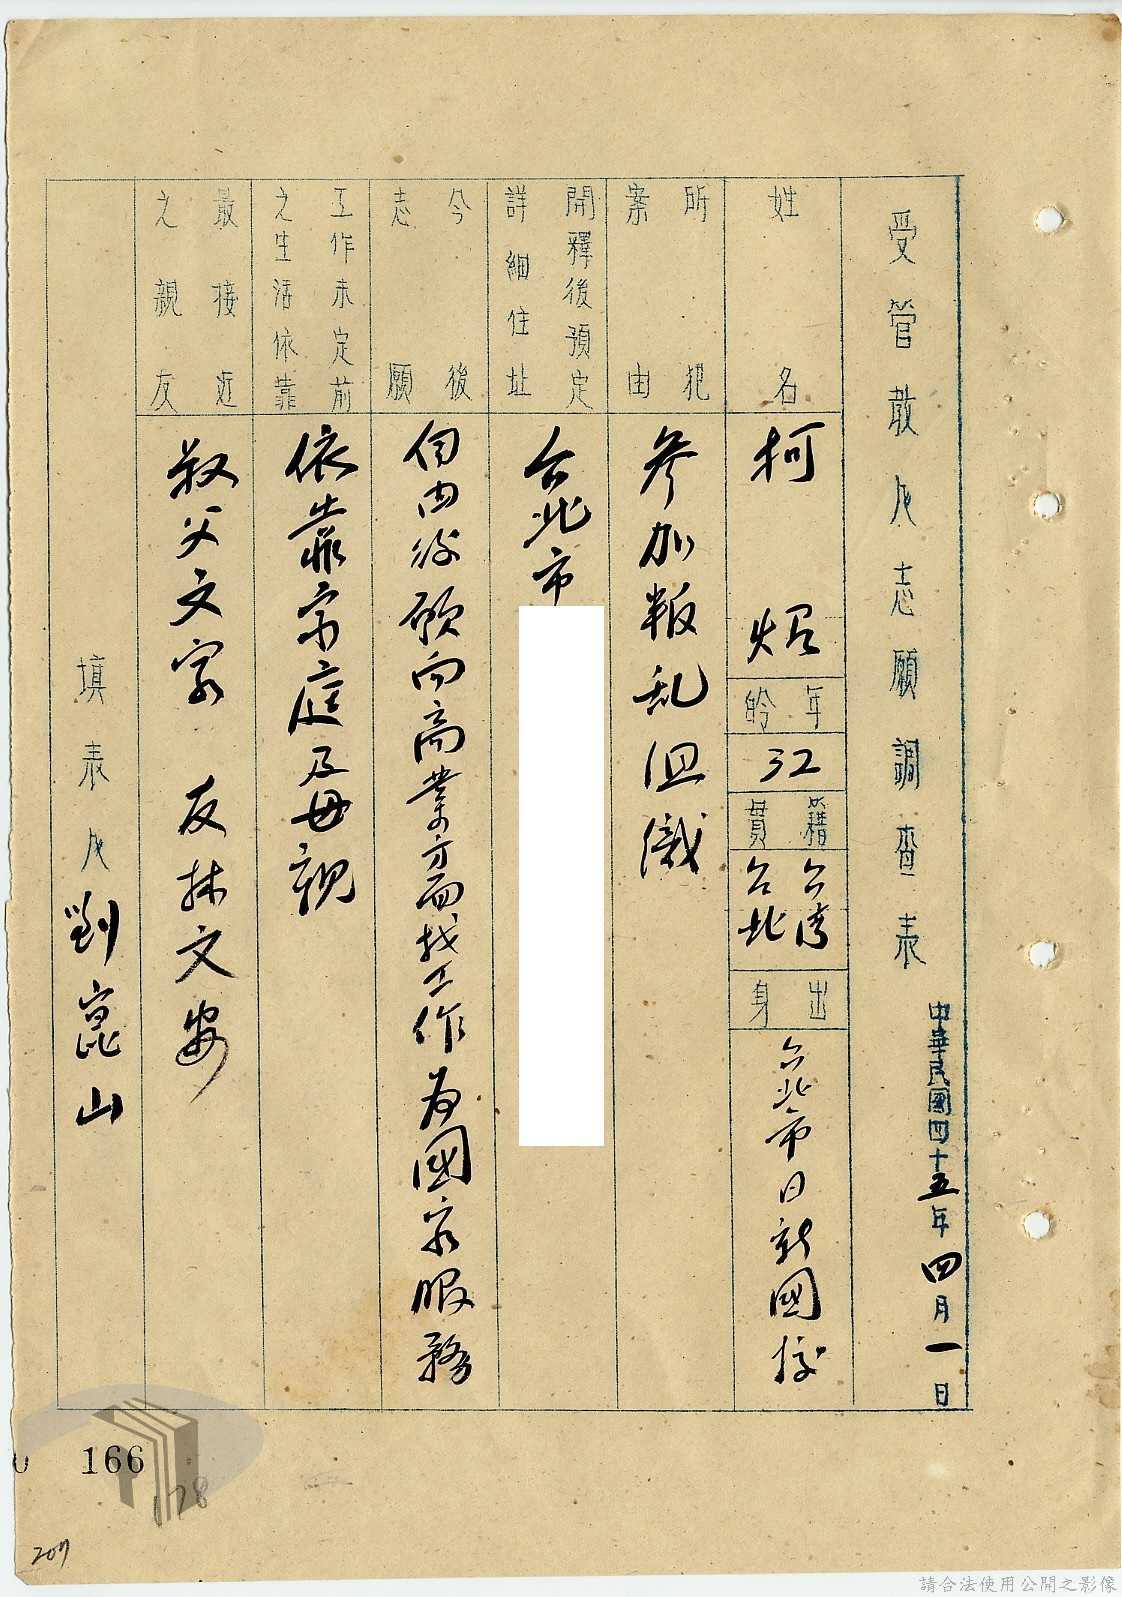 受管敢人志願調查表
中華民國四十五年四月一日
姓名
柯炤
年齡
32
籍貫
台灣
台北
出身
台北市日新國校
所犯
案由
參加叛乱组織
開釋後預定
詳細住址
台北市
今後
志願
自由後願向商業方面找工作為國家服務
工作未定前
之生活依靠
依靠家庭及母親
最接近
之親友
叔父文字 友林文
填表人
劉崑山
166
178
207
請合法使用公開之影像